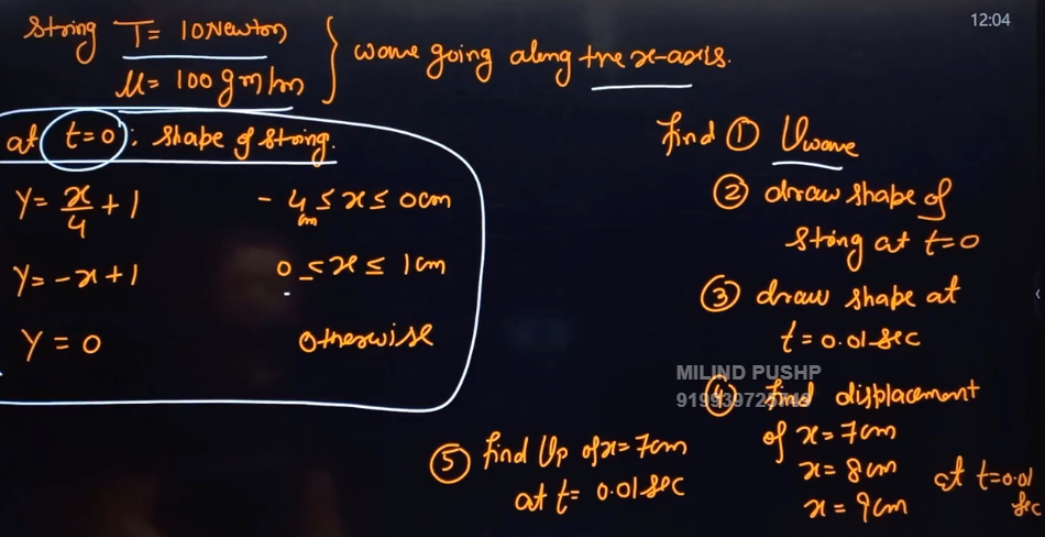 12:04
String T = 10 Newton
μ = 100 gm/m } wave going along +ve x-axis.
at t=0 : shape of string.
Y = x/4 + 1    - 4 cm ≤ x ≤ 0cm
Y = -x+1    0 ≤ x ≤ 1cm
Y = 0    otherwise
find ① Uwave
② draw shape of
sting at t=0
③ draw shape at
t = 0.01 sec
MILIND PUSHP
④ find displacement
of x = 7cm
x = 8cm at t=0.01
sec
x = 9cm
⑤ find Up of x = 7cm
at t = 0.01 sec